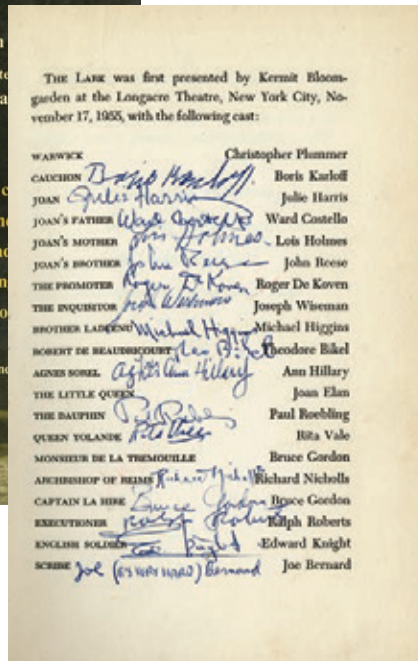 THE LARK was first presented by Kermit Bloom-
garden at the Longacre Theatre, New York City, No-
vember 17, 1955, with the following cast:
WARWICK Christopher Plummer
CAUCHON Boris Karloff Boris Karloff
JOAN Julie Harris Julie Harris
JOAN'S FATHER Ward Costello Ward Costello
JOAN'S MOTHER Lois Holmes Lois Holmes
JOAN'S BROTHER John Reese John Reese
THE PROMOTER Roger De Koven Roger De Koven
THE INQUISITOR Joseph Wiseman
BROTHER LADVENU Michael Higgins Michael Higgins
ROBERT DE BEAUDRICOURT Theo Bikel Theodore Bikel
AGNES SOREL Ann Hillary Ann Hillary
THE LITTLE QUEEN Joan Elan
THE DAUPHIN Paul Roebling
QUEEN YOLANDE Rita Vale Rita Vale
MONSIEUR DE LA TREMOUILLE Bruce Gordon
ARCHBISHOP OF REIMS Richard Nicholls Richard Nicholls
CAPTAIN LA HIRE Bruce Gordon Bruce Gordon
EXECUTIONER Ralph Roberts Ralph Roberts
ENGLISH SOLDIER Edward Knight
SCRIBE Joe Bernard Joe Bernard